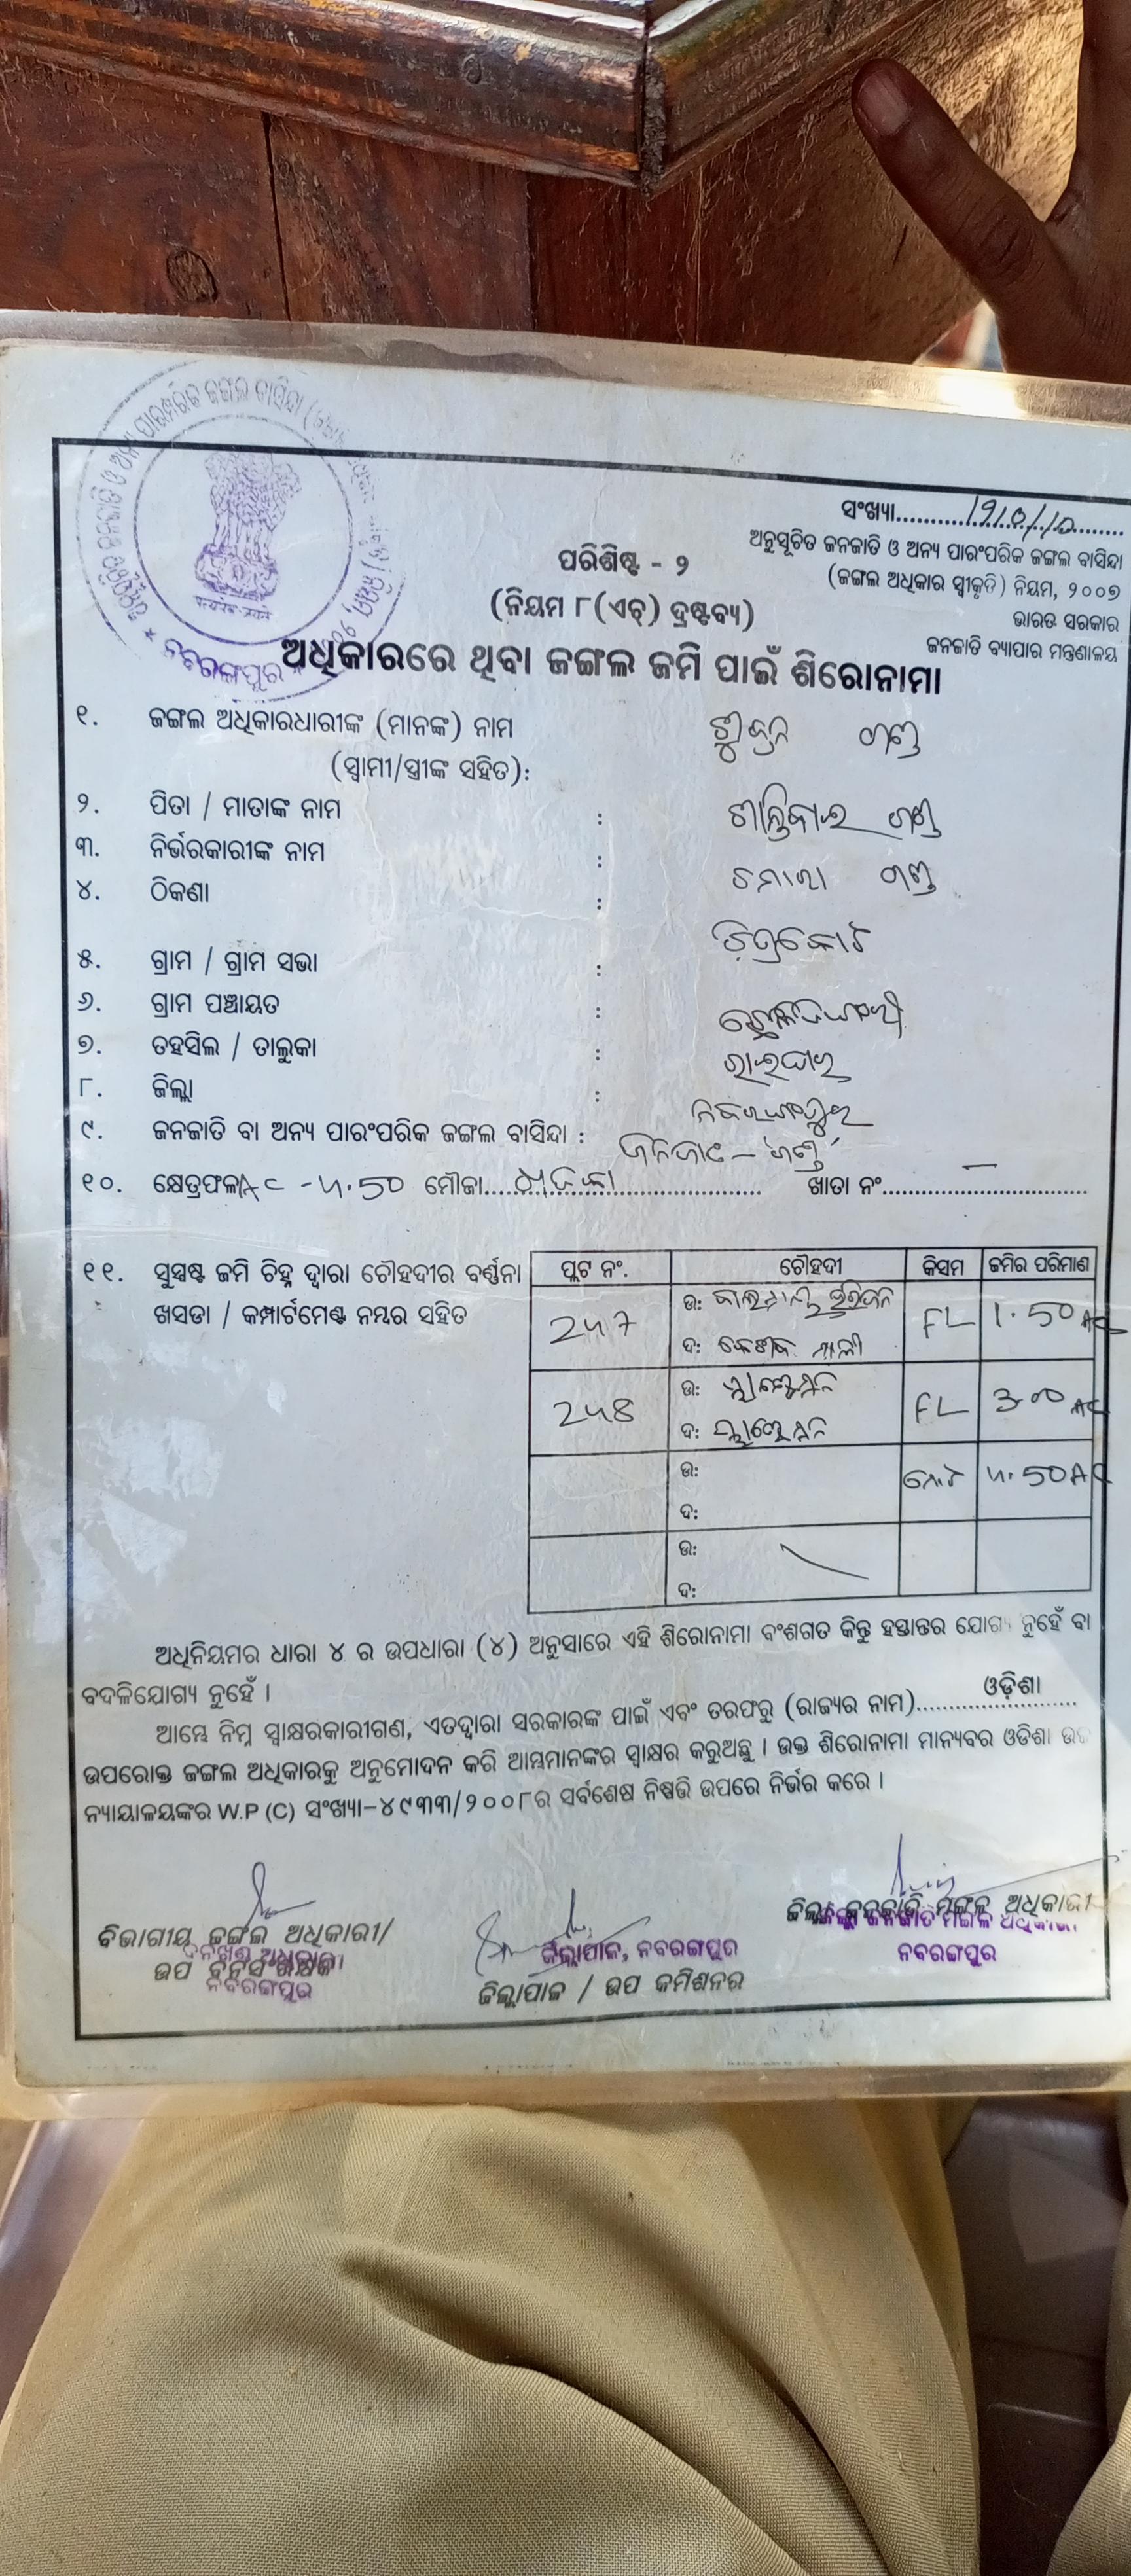 ସଂଖ୍ୟା....................
ଅନୁସୂଚିତ ଜନଜାତି ଓ ଅନ୍ୟ ପାରଂପରିକ ଜଙ୍ଗଲ ବାସିନ୍ଦା
(ଜଙ୍ଗଲ ଅଧିକାର ସ୍ୱୀକୃତି) ନିୟମ, ୨୦୦୭
ଭାରତ ସରକାର
ଜନଜାତି ବ୍ୟାପାର ମନ୍ତ୍ରଣାଳୟ
ପରିଶିଷ୍ଟ - ୨
(ନିୟମ ୮(ଏଚ୍) ଦ୍ରଷ୍ଟବ୍ୟ)
ନବରଙ୍ଗପୁର
ଅଧିକାରରେ ଥିବା ଜଙ୍ଗଲ ଜମି ପାଇଁ ଶିରୋନାମା
୧. ଜଙ୍ଗଲ ଅଧିକାରଧାରୀଙ୍କ (ମାନଙ୍କ) ନାମ ଗଣ୍ଡ
(ସ୍ୱାମୀ/ସ୍ତ୍ରୀଙ୍କ ସହିତ):
୨. ପିତା / ମାତାଙ୍କ ନାମ : ଗଣ୍ଡ
୩. ନିର୍ଭରକାରୀଙ୍କ ନାମ : ଗଣ୍ଡ
୪. ଠିକଣା : ଚିତ୍ରକୋଟ
୫. ଗ୍ରାମ / ଗ୍ରାମ ସଭା :
୬. ଗ୍ରାମ ପଞ୍ଚାୟତ :
୭. ତହସିଲ / ତାଲୁକା : ରାଇଘର
୮. ଜିଲ୍ଲା : ନବରଙ୍ଗପୁର
୯. ଜନଜାତି ବା ଅନ୍ୟ ପାରଂପରିକ ଜଙ୍ଗଲ ବାସିନ୍ଦା : ଜନଜାତି - ଗଣ୍ଡ
୧୦. କ୍ଷେତ୍ରଫଳ AC - 4.50 ମୌଜା.................... ଖାତା ନଂ....................
୧୧. ସୁସ୍ପଷ୍ଟ ଜମି ଚିହ୍ନ ଦ୍ୱାରା ଚୌହଦୀର ବର୍ଣ୍ଣନା
ଖସଡା / କମ୍ପାର୍ଟମେଣ୍ଟ ନମ୍ବର ସହିତ
ପ୍ଲଟ ନଂ. ଚୌହଦୀ କିସମ ଜମିର ପରିମାଣ
247 ଉ: ହରିଜନ FL 1.50 AC
ଦ: କେଶବ ମାଳୀ
248 ଉ: FL 3.00 AC
ଦ:
ଉ: ମୋଟ 4.50 AC
ଦ:
ଉ:
ଦ:
ଅଧିନିୟମର ଧାରା ୪ ର ଉପଧାରା (୪) ଅନୁସାରେ ଏହି ଶିରୋନାମା ବଂଶଗତ କିନ୍ତୁ ହସ୍ତାନ୍ତର ଯୋଗ୍ୟ ନୁହେଁ ବା
ବଦଳିଯୋଗ୍ୟ ନୁହେଁ ।
ଆମ୍ଭେ ନିମ୍ନ ସ୍ୱାକ୍ଷରକାରୀଗଣ, ଏତଦ୍ୱାରା ସରକାରଙ୍କ ପାଇଁ ଏବଂ ତରଫରୁ (ରାଜ୍ୟର ନାମ)....ଓଡ଼ିଶା....
ଉପରୋକ୍ତ ଜଙ୍ଗଲ ଅଧିକାରକୁ ଅନୁମୋଦନ କରି ଆମ୍ଭମାନଙ୍କର ସ୍ୱାକ୍ଷର କରୁଅଛୁ । ଉକ୍ତ ଶିରୋନାମା ମାନ୍ୟବର ଓଡିଶା
ନ୍ୟାୟାଳୟଙ୍କର W.P (C) ସଂଖ୍ୟା-୪୯୩୩/୨୦୦୮ର ସର୍ବଶେଷ ନିଷ୍ପତ୍ତି ଉପରେ ନିର୍ଭର କରେ ।
ବିଭାଗୀୟ ଜଙ୍ଗଲ ଅଧିକାରୀ/
ଉପ
ନବରଙ୍ଗପୁର
ଜିଲ୍ଲାପାଳ, ନବରଙ୍ଗପୁର
ଜିଲ୍ଲାପାଳ / ଉପ କମିଶନର
ଜିଲ୍ଲା ଜନଜାତି ମଙ୍ଗଳ ଅଧିକାରୀ
ନବରଙ୍ଗପୁର